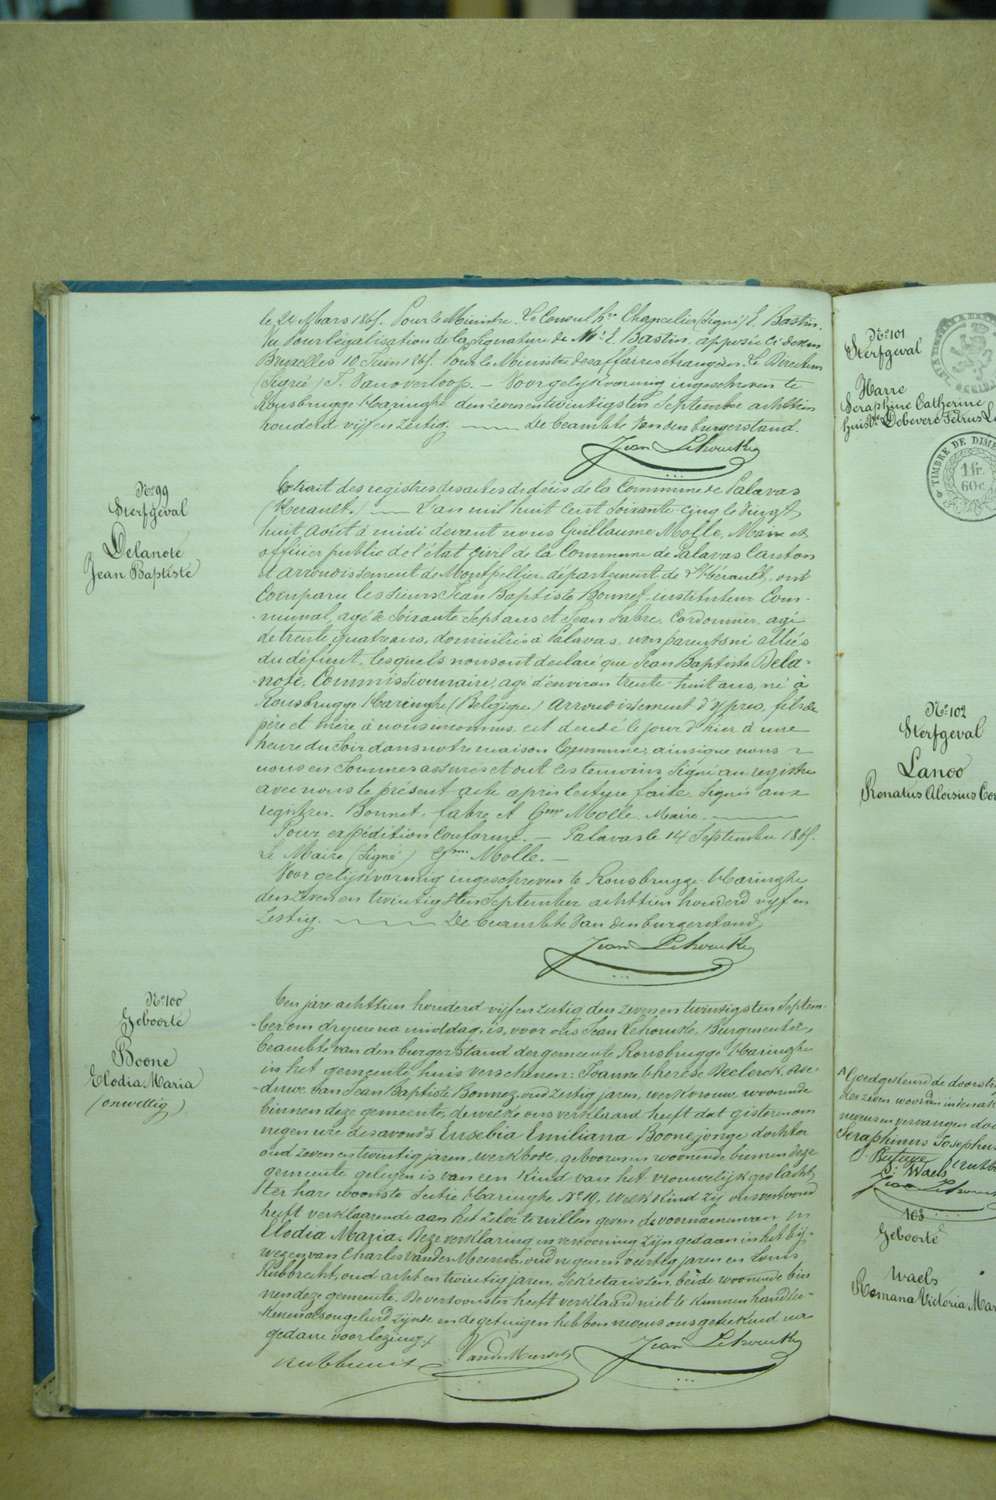 le 24 Mars 1865. Pour le Ministre. Le Consul Chancelier (signé) E. Bastin.
Vu pour légalisation de la Signature de Mr E. Bastin, apposée ci dessus
Bruxelles 10 Juin 1865. Pour le Ministre des affaires étrangères. Le Directeur
(signé) T. Vanoverloop. — Voor gelijkvormig ingeschreven te
Rousbrugge Haringhe den zeven en twintigsten September achttien
honderd vijf en zestig. De beambte van den burgerstand.
Jean Lehouck
No 99
Sterfgeval
Delanote
Jean Baptiste
Extrait des registres des actes de décès de la Commune de Palavas
(Herault). L'an mil huit cent soixante cinq le vingt
huit Août à midi devant nous Guillaume Molle, Maire et
officier public de l'état civil de la Commune de Palavas Canton
et arrondissement de Montpellier département de l'Hérault, ont
Comparu les sieurs Jean Baptiste Bonnet, instituteur Com-
-munal, agé de soixante sept ans et Jean Fabre, Cordonnier, agé
de trente quatre ans, domiciliés à Palavas, non parents ni alliés
du défunt, lesquels nous ont declaré que Jean Baptiste Dela-
-note, Commissionnaire, agé d'environ trente-huit ans, né à
Rousbrugge Haringhe (Belgique) arrondissement d'Ypres, fils de
père et mère à nous inconnus, est decédé le jour d'hier à une
heure du soir dans notre maison Commune, ainsi que nous
nous en sommes assurés et ont les temoins signé au registre
avec nous le present acte après lecture faite. Signés aux
registres. Bonnet, fabre et Gme Molle, Maire.
Pour expédition Conforme. — Palavas le 14 Septembre 1865.
Le Maire (Signé) Gme Molle. —
Voor gelijkvormig ingeschreven te Rousbrugge-Haringhe
den zeven en twintigsten September achttien honderd vijf en
zestig. De beambte van den burgerstand,
Jean Lehouck
No 100
Geboorte
Boone
Elodia Maria
(onwettig)
Ten jare achttien honderd vijf en zestig den zeven en twintigsten Septem-
-ber om dry ure na middag, is, voor ons Jean Lehouck, Burgmeester,
beambte van den burgerstand der gemeente Rousbrugge Haringhe
in het gemeente huis verschenen: Joanne therese Declerck, we-
-duwe van Jean Baptiste Bonnez, oud zestig jaren, werkvrouw, woonende
binnen deze gemeente, de welke ons verklaard heeft dat gisteren om
negen ure des avonds Eusebia Emiliana Boone jonge dochter
oud zeven en twintig jaren, werkbode, geboren en woonende binnen deze
gemeente gelegen is van een Kind van het vrouwelijk geslacht,
ter hare woonste Sectie Haringhe No 19, welk kind zij ons vertoond
heeft verklaarende aan het zelve te willen geven de voornamen van
Elodia Maria. Deze verklaring en vertooning zijn gedaan in het bij-
wezen van Charles Vanden Meersch, oud negen en veertig jaren en Louis
Rubbrecht, oud acht en twintig jaren, Secretarissen, beide woonende bin-
nen deze gemeente. De vertoonster heeft verklaard niet te kunnen handtee-
kenen als ongeleerd zijnde en de getuigen hebben nevens ons geteekend na
gedane voorlezing
Rubbrecht Vanden Meersch Jean Lehouck
No 101
Sterfgeval
Harre
Seraphine Catherine
Debevere Petrus
TIMBRE DE DIM
1 fr.
60 c.
No 102
Sterfgeval
Lanoo
Renatus Aloisius
Goedgekeurd de doorsta
der zeven woorden
nevens vervangen doo
Seraphinus Josephus
Waels
Jean Lehouck
103
Geboorte
Waels
Romana Victoria Mar